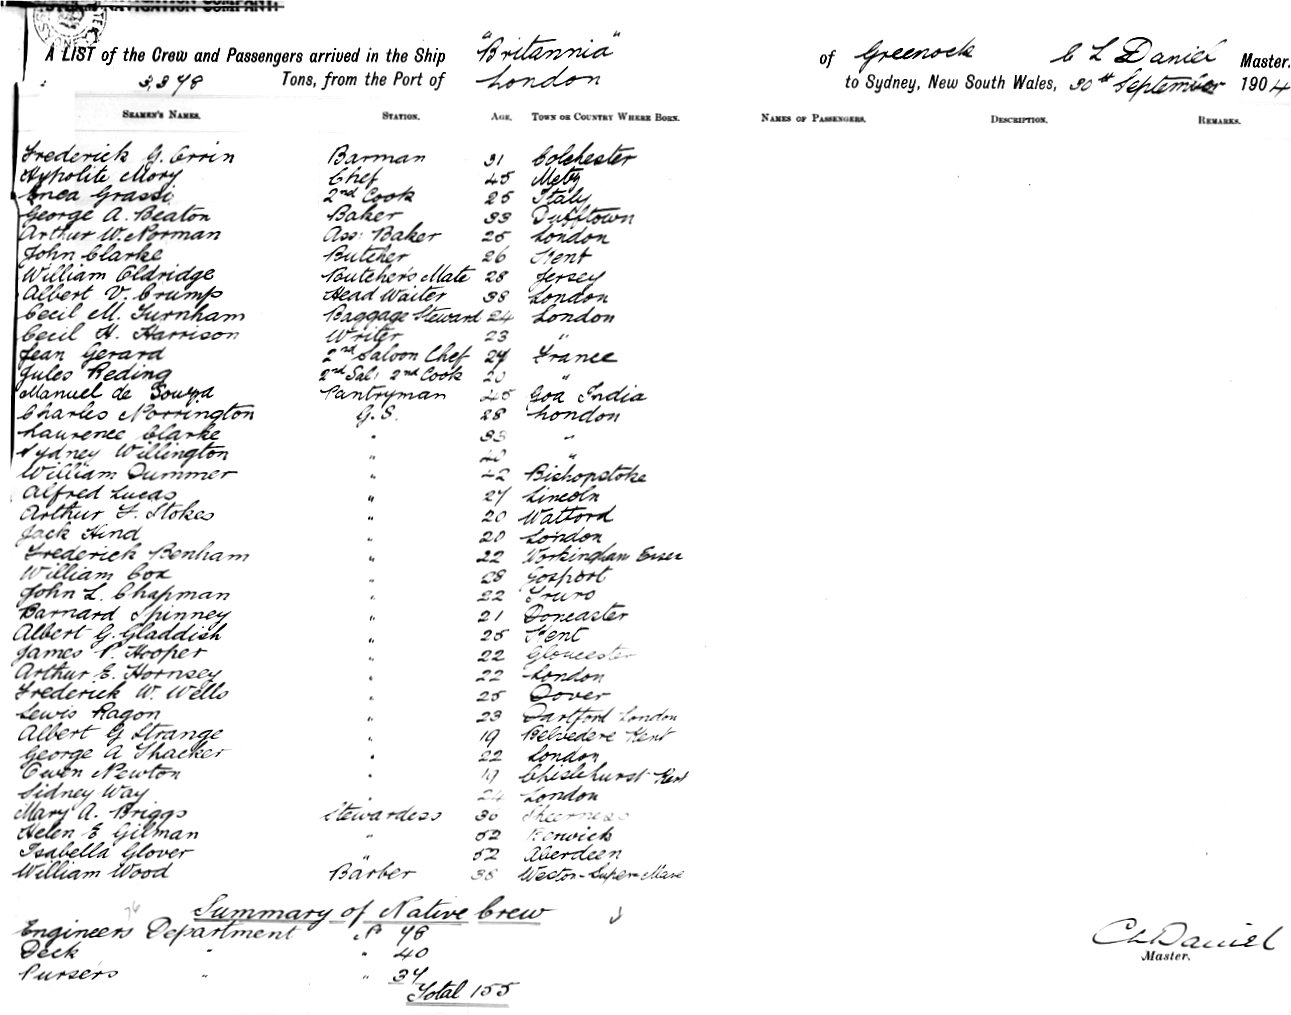 STEAM NAVIGATION COMPANY
A LIST of the Crew and Passengers arrived in the Ship "Britannia" of Greenock C L Daniel Master.
3,378 Tons, from the Port of London to Sydney, New South Wales, 30th September 1904
SEAMEN'S NAMES. STATION. AGE. TOWN OR COUNTRY WHERE BORN. NAMES OF PASSENGERS. DESCRIPTION. REMARKS.
Frederick G. Orrin Barman 31 Colchester
Hypolite Mory Chef 45 Metz
Enea Grassi 2nd Cook 25 Italy
George A. Beaton Baker 33 Dufftown
Arthur W. Norman Ass: Baker 25 London
John Clarke Butcher 26 Kent
William Eldridge Butcher's Mate 28 Jersey
Albert V. Crump Head Waiter 38 London
Cecil M. Turnham Baggage Steward 24 London
Cecil H. Harrison Writer 23 "
Jean Gerard 2nd Saloon Chef 27 France
Jules Reding 2nd Sal: 2nd Cook 20 "
Manuel de Souza Pantryman 45 Goa India
Charles Norrington G.S. 28 London
Laurence Clarke " 33 "
Sydney Willington " 40 "
William Dummer " 42 Bishopstoke
Alfred Lucas " 27 Lincoln
Arthur F. Stokes " 20 Watford
Jack Hind " 20 London
Frederick Benham " 22 Workingham
William Cox " 28 Gosport
John L. Chapman " 22 Truro
Barnard Spinney " 21 Doncaster
Albert G. Gladdish " 25 Kent
James P. Hooper " 22 Gloucester
Arthur E. Hornsey " 22 London
Frederick W. Wells " 25 Dover
Lewis Ragon " 23 Dartford London
Albert G Strange " 19 Belvedere Kent
George A Thacker " 22 London
Owen Newton " 19 Chislehurst Kent
Sidney Way " 24 London
Mary A. Briggs Stewardess 36 Sheerness
Helen E Gilman " 52 Berwick
Isabella Glover " 52 Aberdeen
William Wood Barber 38 Weston-Super-Mare
Summary of Native Crew
Engineers Department 78
Deck " " 40
Pursers " " 37
Total 155
C L Daniel
Master.